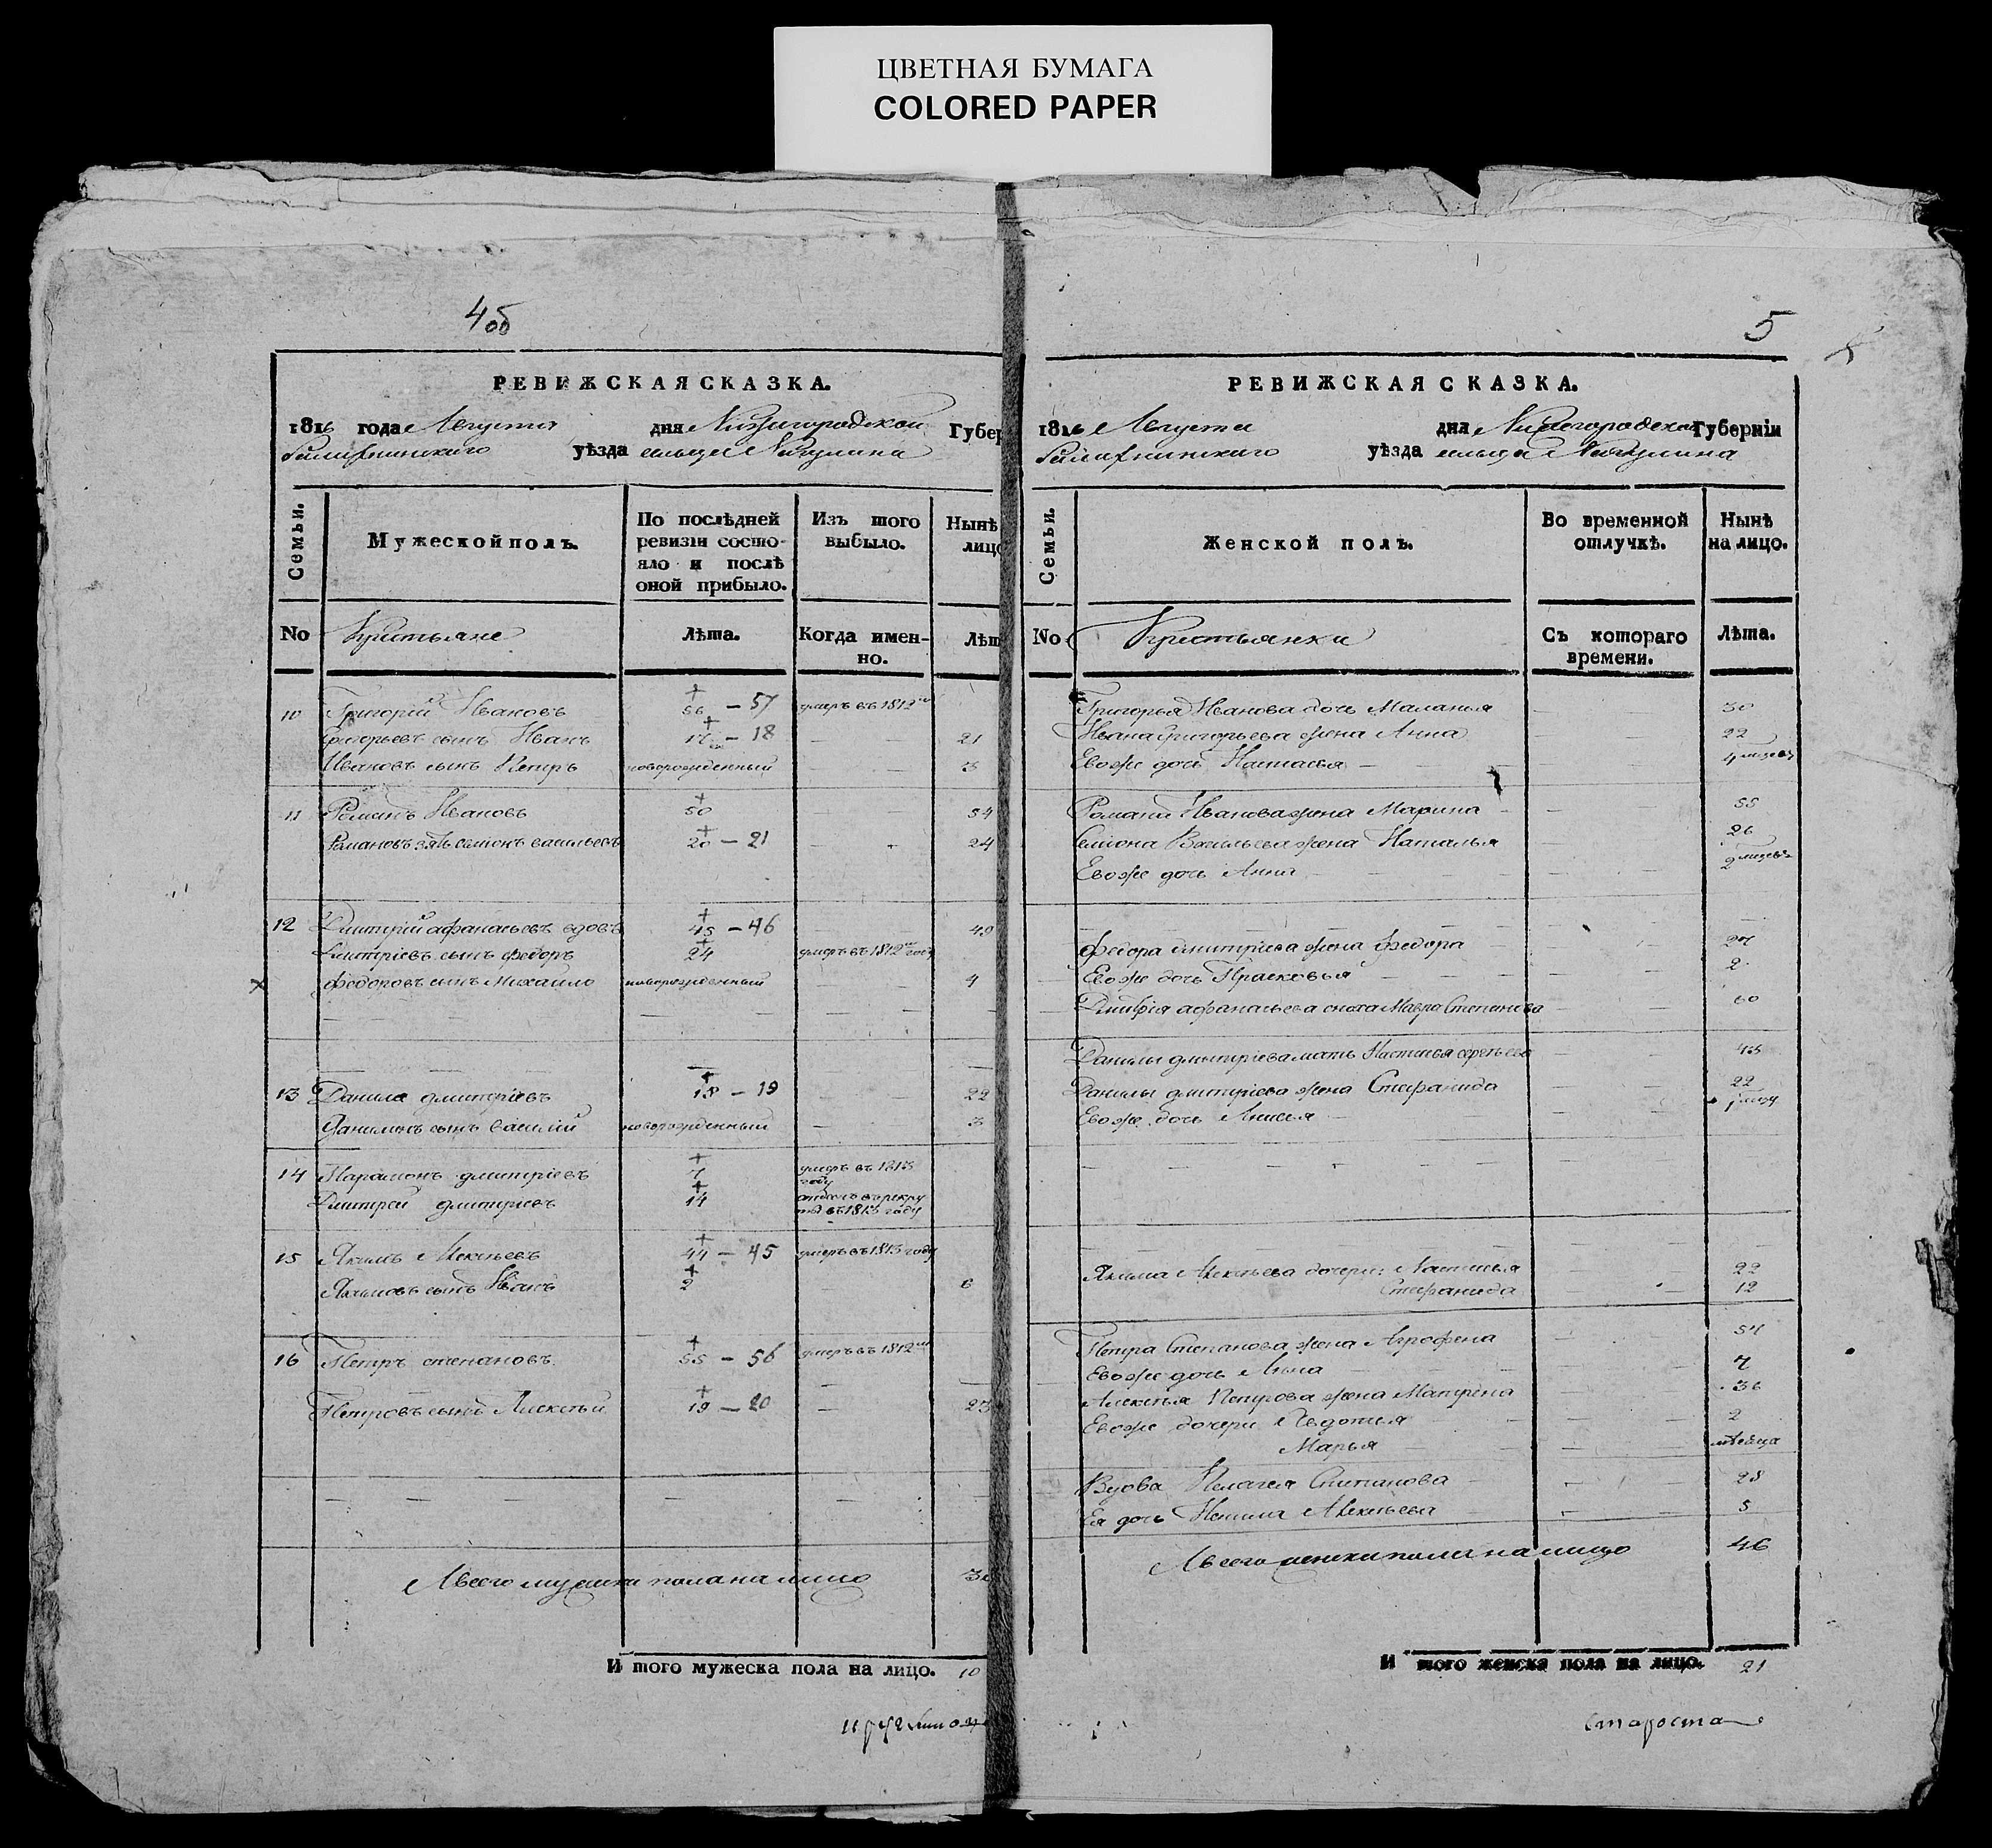 ЦВЕТНАЯ БУМАГА
COLORED PAPER
4об
РЕВИЖСКАЯ СКАЗКА.
1816 года Августа дня Нижегородской Губер
уѣзда сельца
Семьи.
Мужеской полъ.
По послѣдней ревизіи состо-
яло и послѣ
оной прибыло.
Изъ того выбыло.
Нынѣ
лицо
No
Крестьяне
Лѣта.
Когда имен-
но.
Лѣт
10 Григорій Ивановъ 56 — 57 умеръ въ 1812
Григорьевъ сынъ Иванъ 17 — 18 — — 21
Ивановъ сынъ Петръ новорожденный — — 3
11 Романъ Ивановъ 50 — — 54
Романовъ зять Семіонъ Васильевъ 20 — 21 — — 24
12 Дмитрій афанасьевъ вдовъ 45 — 46 — — 49
Дмитріевъ сынъ федоръ 24 умеръ въ 1812 году
федоровъ сынъ Михайло новорожденный — — 4
13 Данила дмитріевъ 18 — 19 — — 22
Даниловъ сынъ василій новорожденный — — 3
14 Парамонъ дмитріевъ 7 умеръ въ 1813
году
Дмитрей дмитріевъ 14 отданъ в рекру
ты въ 1813 году
15 Якимъ Алексѣевъ 44 — 45 умеръ въ 1813 году
Якимовъ сынъ Иванъ 2 — 6
16 Петръ степановъ 55 — 56 умеръ въ 1812
Петровъ сынъ Алексѣй 19 — 20 — 23
А всего мужска пола на лицо
И того мужеска пола на лицо. 10
5
РЕВИЖСКАЯ СКАЗКА.
1816 Августа дня Нижегородской Губерніи
уѣзда сельца
Семьи.
Женской полъ.
Во временной
отлучкѣ.
Нынѣ
на лицо.
No
Крестьянки
Съ котораго
времени.
Лѣта.
Григорья Иванова дочь Маланья — — 30
Ивана Григорьева жена Анна — — 22
Евоже дочь Настасья — 4
Романа Иванова жена Марина — — 55
Семіона Васильева жена Наталья — — 26
Евоже дочь Анна — — 2
федора дмитріева жена федора — — 27
Евоже дочь Прасковья — — 2
Дмитрія афанасьева сноха Мавра Степанова — 60
Данилы дмитріева мать Настасья — — 45
Данилы дмитріева жена Стефанида — — 22
Евоже дочь Анисья — — 1
Якима Алексѣева дочери: Настасья — — 22
Стефанида — — 12
Петра Степанова жена Агрофена — — 54
Евоже дочь Анна — — 7
Алексѣя Петрова жена Матрена — — 36
Евоже дочери Авдотья — — 2
Марья — — мѣсяца
Вдова Пелагея Степанова — — 28
Ея дочь Ненила Алексѣева — — 5
А всего женска пола на лицо 46
И того женска пола на лицо. 21
староста